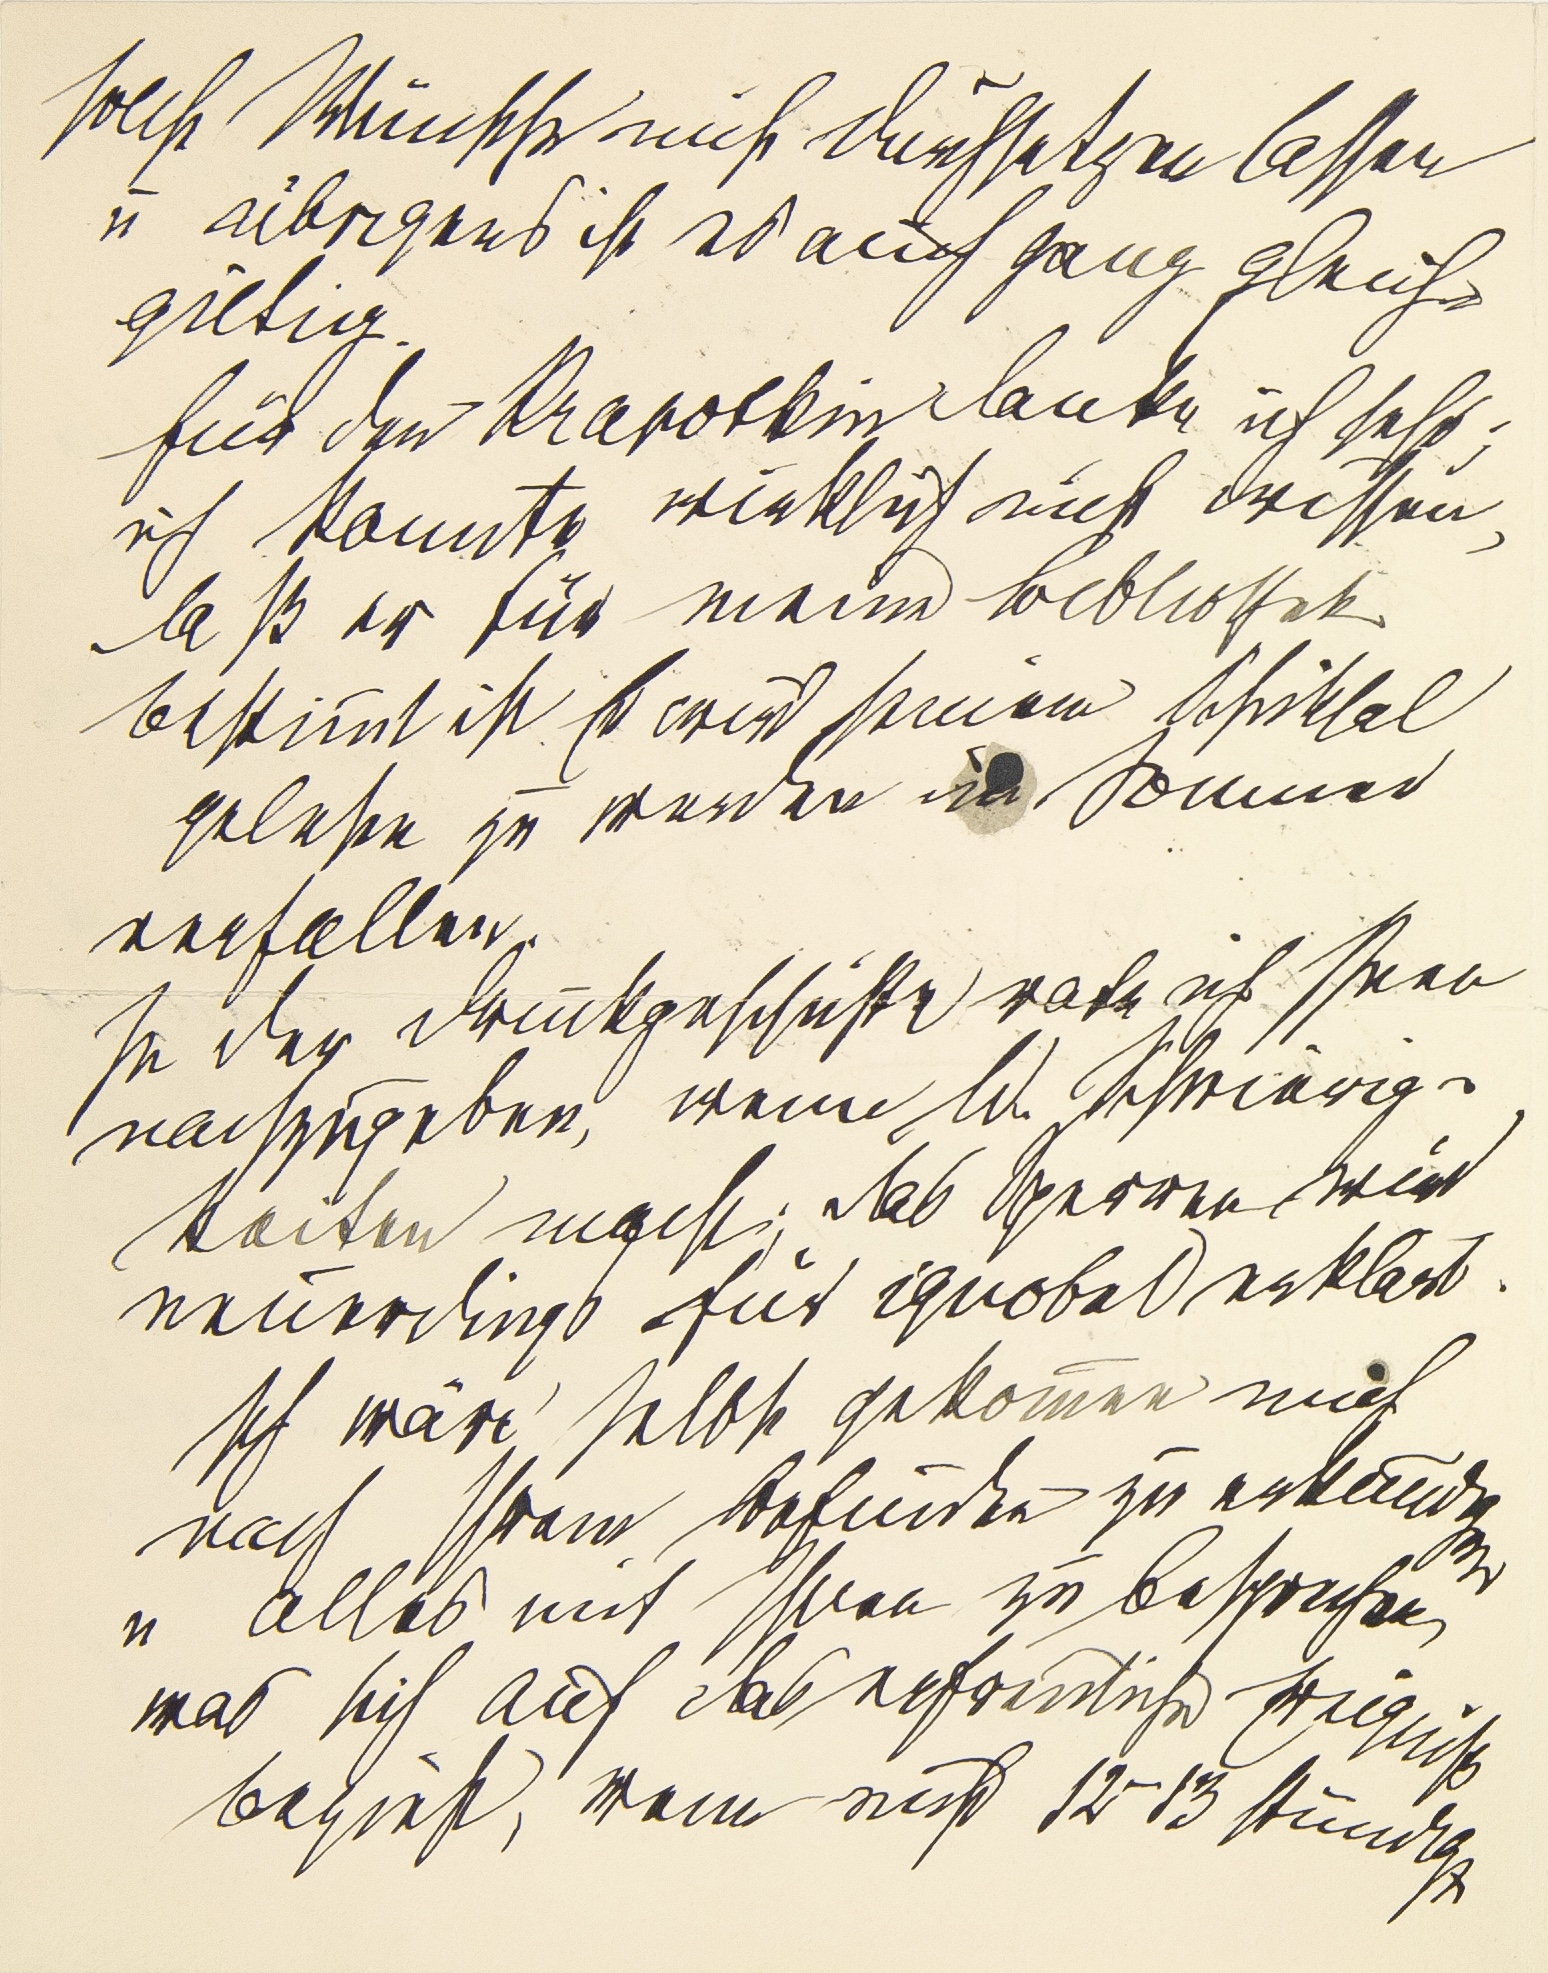 solche Wünsche nicht durchsetzen lassen
u übrigens ist es auch ganz gleich-
giltig.
für den Krapotkin danke ich sehr;
ich konnte wirklich nicht wissen,
daß er für meine Bibliothek
bestimmt ist. Er wird seinem Schicksal
gelesen zu werden im Sommer
verfallen.
In der Druckgeschichte rate ich Ihnen
nachzugeben, wenn Schwierig-
keiten macht; das Sperren wird
neuerdings für ignobel erklärt.
Ich wäre selbst gekommen mich
nach Ihrem Befinden zu erkundigen
u alles mit Ihnen zu besprechen,
was sich auf das erfreuliche Ereigniß
bezieht, wenn nicht 12-13 stündige